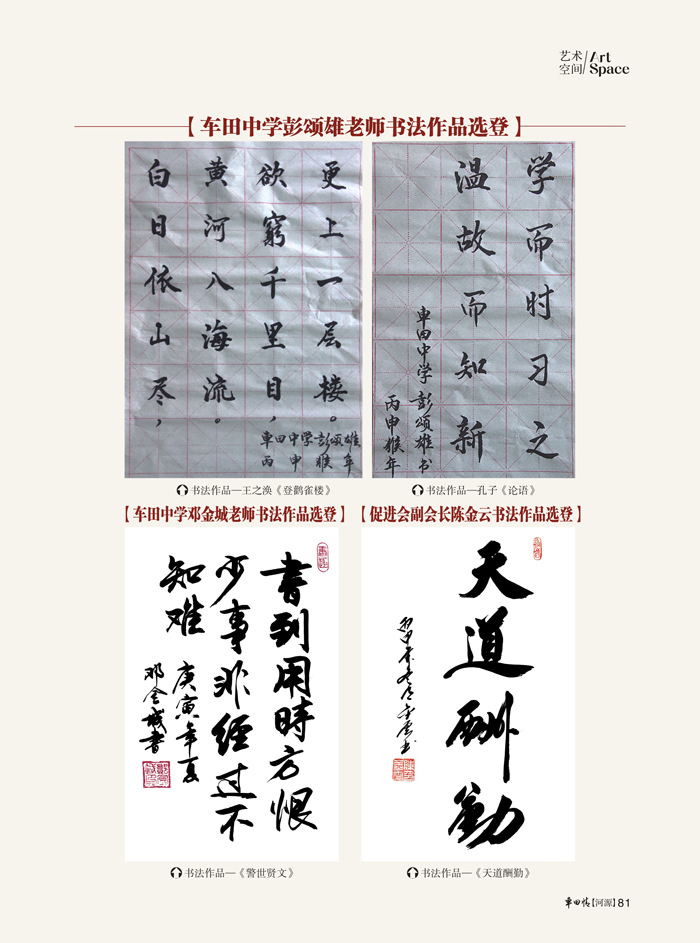 艺术
空间
Art
Space
【车田中学彭颂雄老师书法作品选登】
白日依山尽，
黄河入海流。
欲窮千里目，
更上一层楼。
車田中学彭颂雄
丙申猴年
学而时习之
温故而知新
車田中学 彭颂雄书
丙申猴年
书法作品—王之涣《登鹳雀楼》
书法作品—孔子《论语》
【车田中学邓金城老师书法作品选登】
【促进会副会长陈金云书法作品选登】
書到用時方恨
少事非經过不
知难
庚寅年夏
邓金城書
天道酬勤
书法作品—《警世贤文》
书法作品—《天道酬勤》
車田情【河源】81